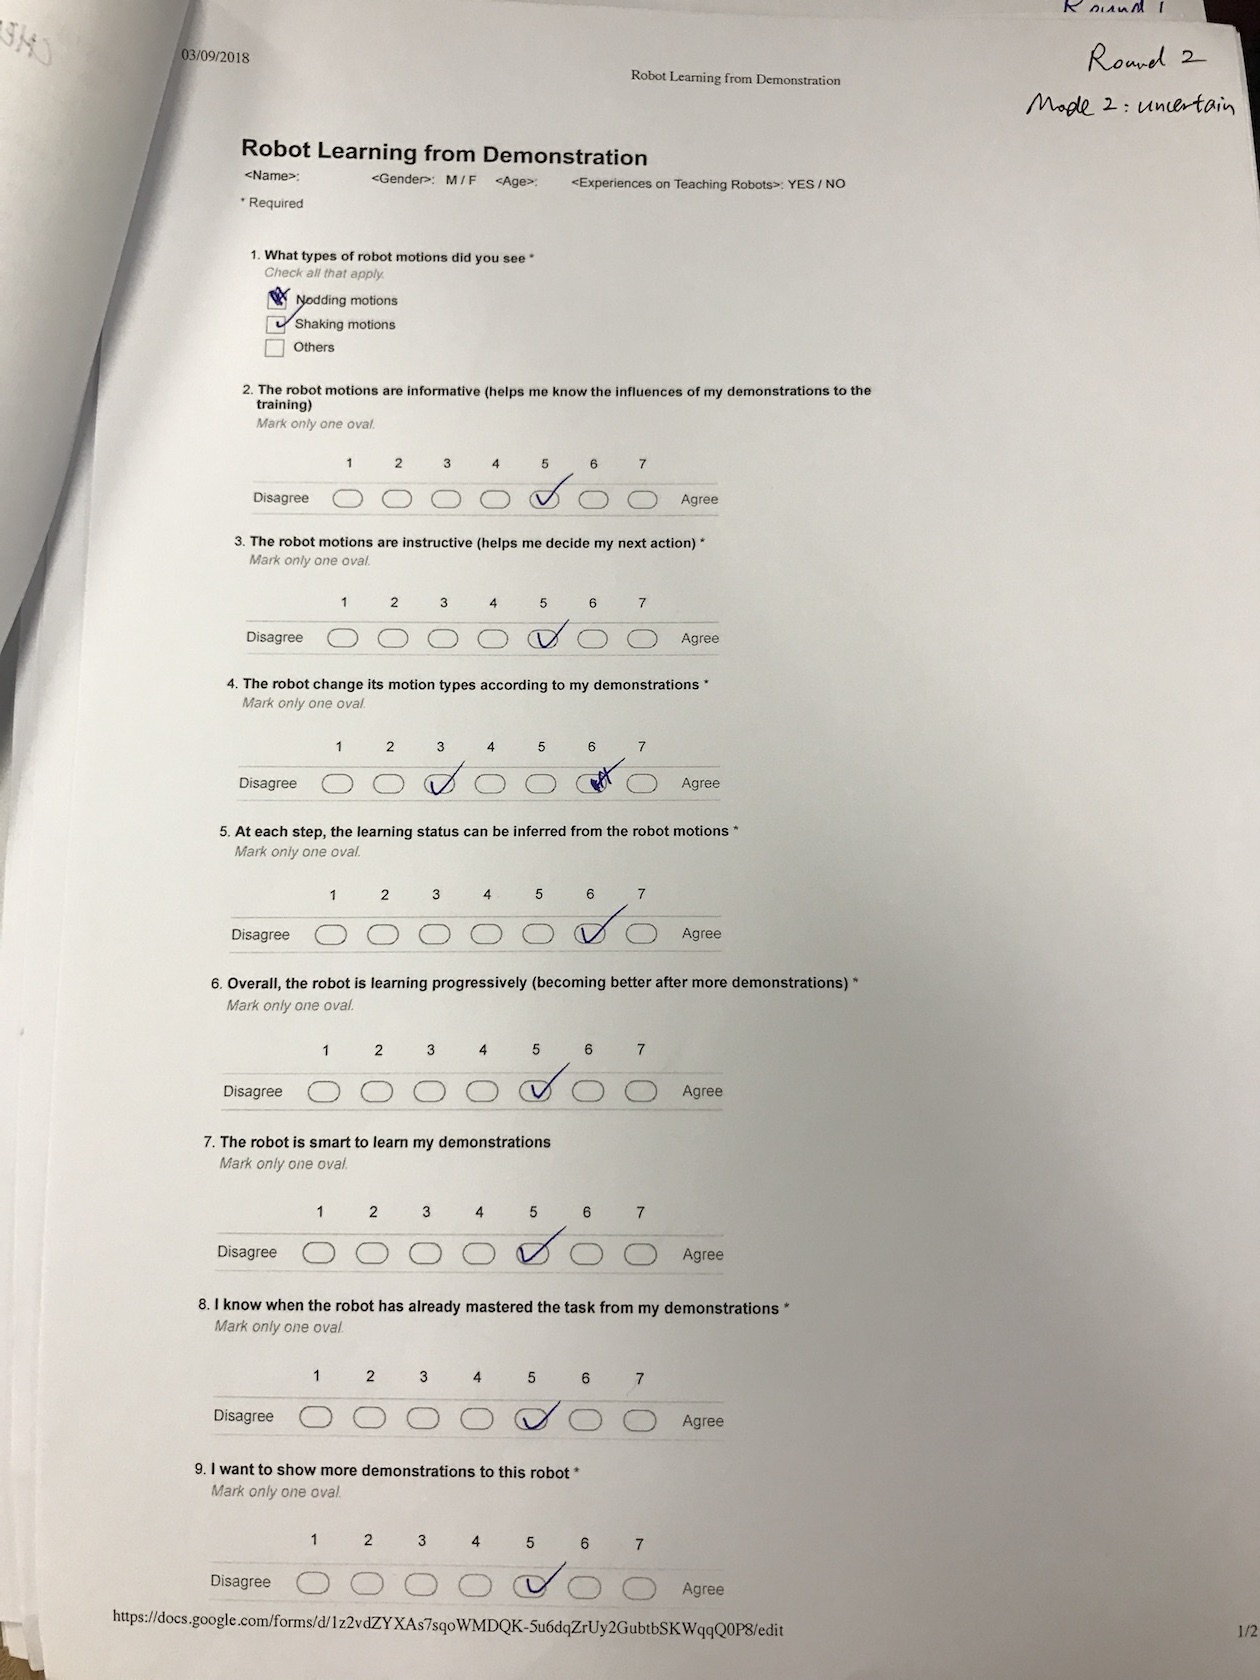 Round 1
03/09/2018
Robot Learning from Demonstration
Round 2
Mode 2: uncertain
Robot Learning from Demonstration
<Name>: <Gender>: M / F <Age>: <Experiences on Teaching Robots>: YES / NO
* Required
1. What types of robot motions did you see *
Check all that apply.
Nodding motions
Shaking motions
Others
2. The robot motions are informative (helps me know the influences of my demonstrations to the
training)
Mark only one oval.
1 2 3 4 5 6 7
Disagree Agree
3. The robot motions are instructive (helps me decide my next action) *
Mark only one oval.
1 2 3 4 5 6 7
Disagree Agree
4. The robot change its motion types according to my demonstrations *
Mark only one oval.
1 2 3 4 5 6 7
Disagree Agree
5. At each step, the learning status can be inferred from the robot motions *
Mark only one oval.
1 2 3 4 5 6 7
Disagree Agree
6. Overall, the robot is learning progressively (becoming better after more demonstrations) *
Mark only one oval.
1 2 3 4 5 6 7
Disagree Agree
7. The robot is smart to learn my demonstrations
Mark only one oval.
1 2 3 4 5 6 7
Disagree Agree
8. I know when the robot has already mastered the task from my demonstrations *
Mark only one oval.
1 2 3 4 5 6 7
Disagree Agree
9. I want to show more demonstrations to this robot *
Mark only one oval.
1 2 3 4 5 6 7
Disagree Agree
https://docs.google.com/forms/d/1z2vdZYXAs7sqoWMDQK-5u6dqZrUy2GubtbSKWqqQ0P8/edit
1/2